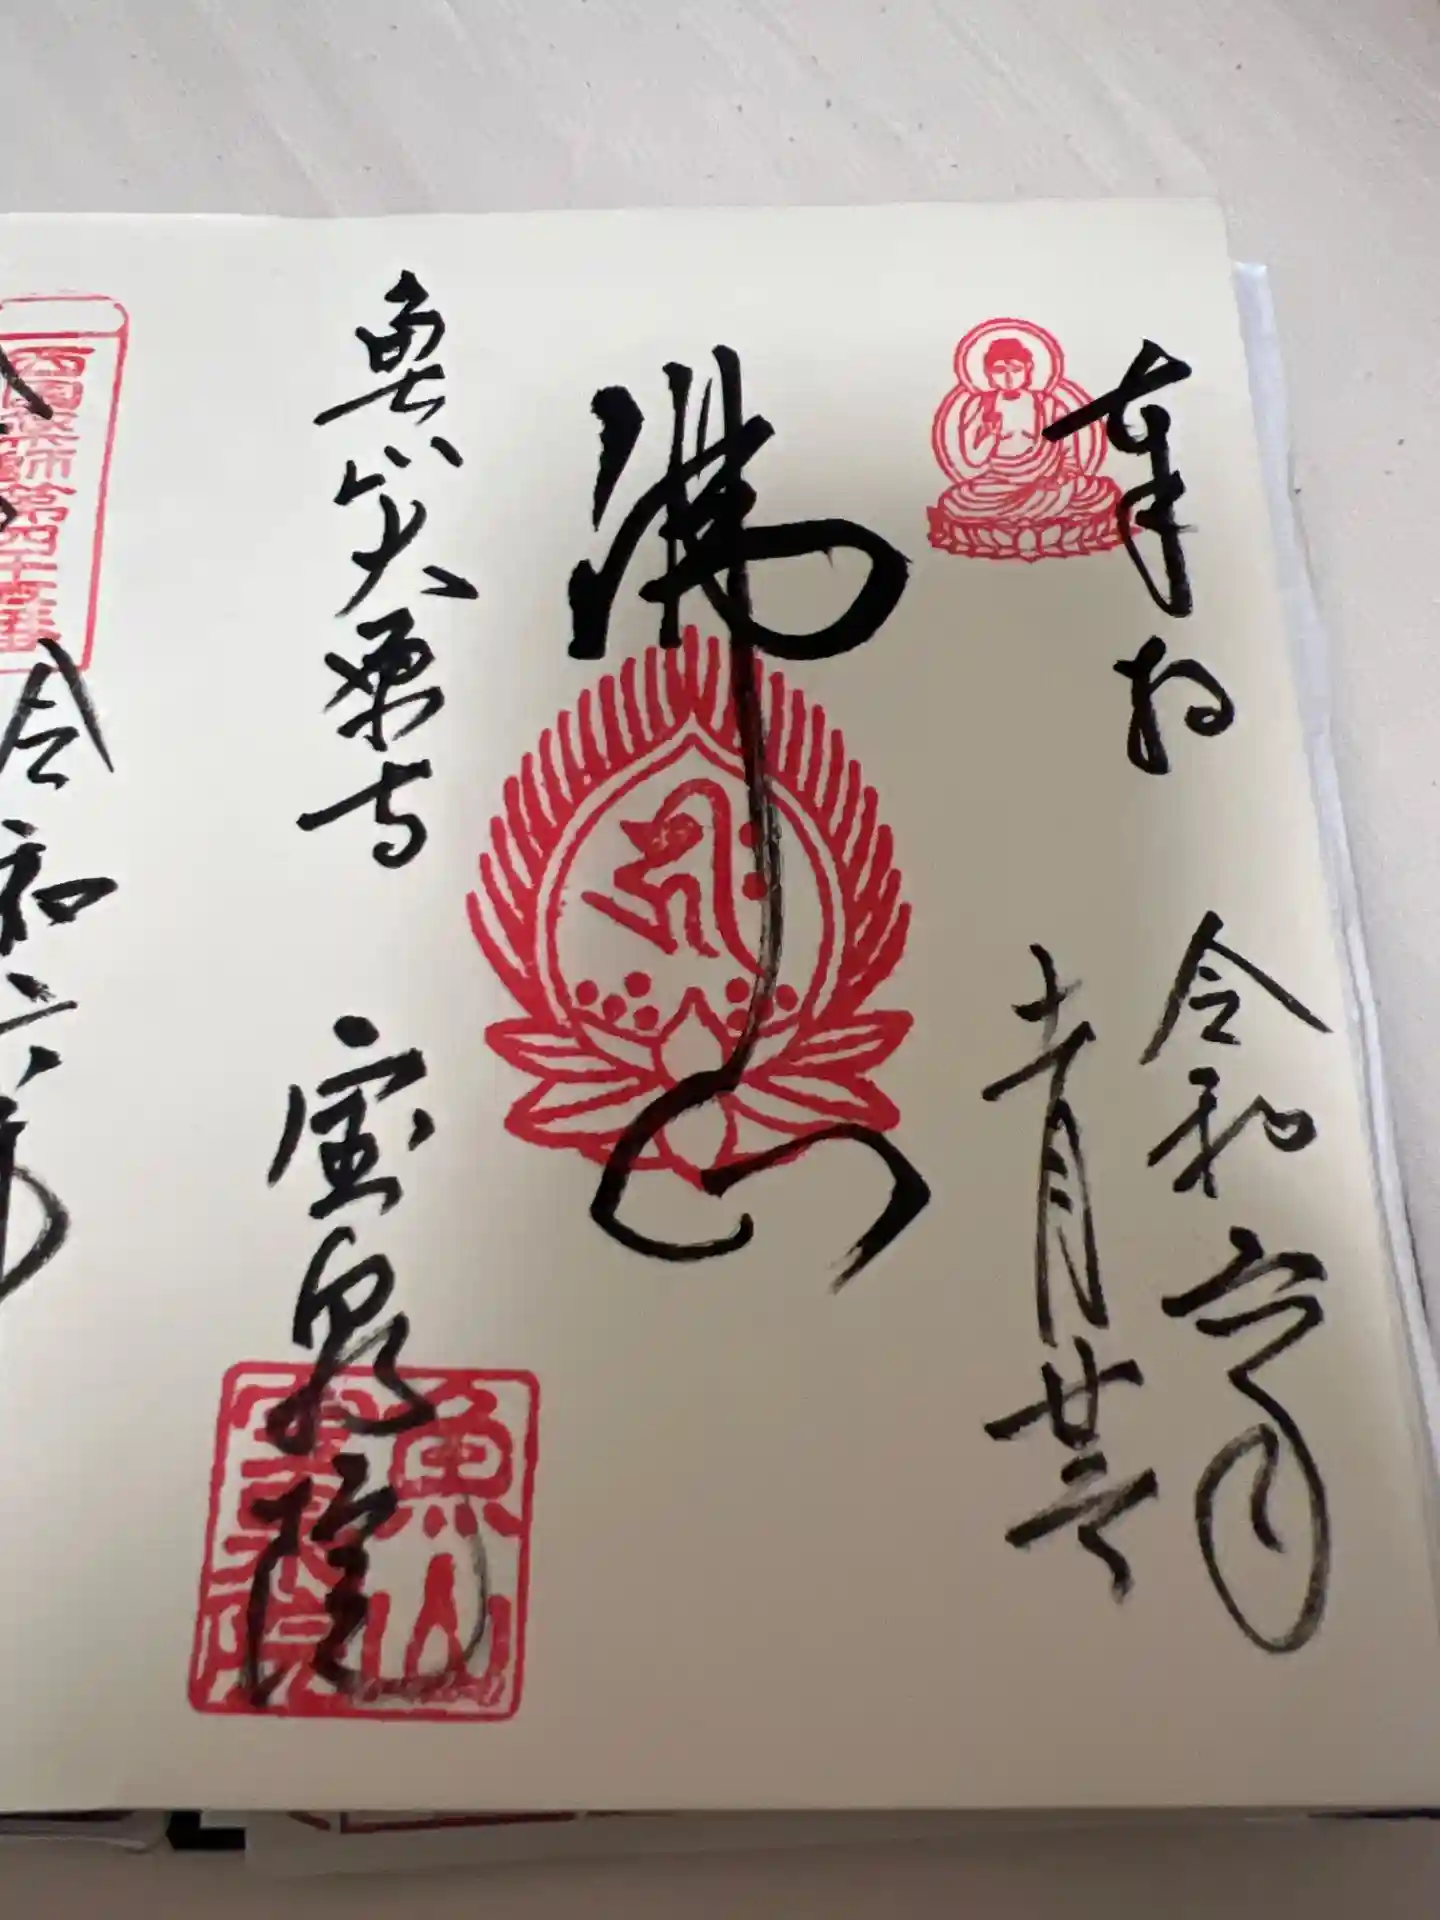 奉拝
令和六年
十一月廿六
佛心
魚山大原寺
宝泉院
魚山
寶泉院
西國薬師第四十五番
令和六年